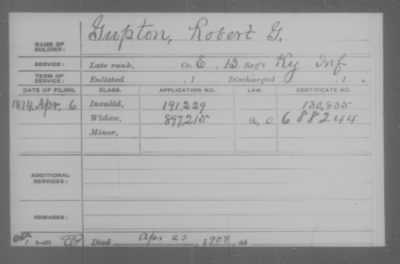 NAME OF SOLDIER: Gupton, Robert G.
SERVICE: Late rank, Co. E, 13 Reg't Ky Inf
TERM OF SERVICE: Enlisted , 1 Discharged , 1 .
DATE OF FILING. CLASS. APPLICATION NO. LAW. CERTIFICATE NO.
1874 Apr. 6 Invalid, 191,229 130,835
Widow, 897,215 a.c 688244
Minor,
ADDITIONAL SERVICES:
REMARKS:
Died Apr 23, 1908, at